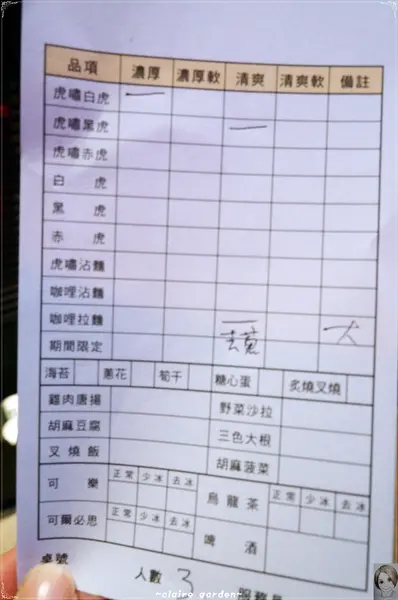 品項 濃厚 濃厚軟 清爽 清爽軟 備註
虎嘯白虎 一
虎嘯黑虎 一
虎嘯赤虎
白虎
黑虎
赤虎
虎嘯沾麵
咖哩沾麵
咖哩拉麵 一 大
期間限定 去蔥
海苔 蔥花 筍干 糖心蛋 炙燒叉燒
雞肉唐揚 野菜沙拉
胡麻豆腐 三色大根
叉燒飯 胡麻菠菜
可樂 正常 少冰 去冰 烏龍茶 正常 少冰 去冰
可爾必思 正常 少冰 去冰 啤酒
桌號 人數 3 服務員
~claire garden~